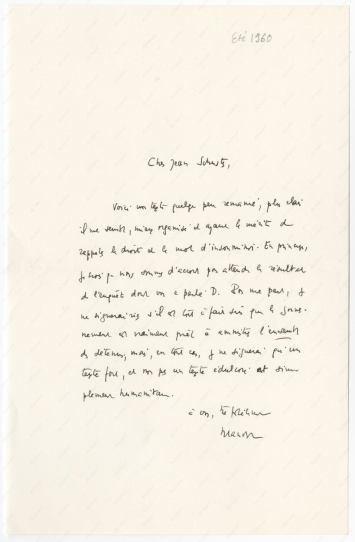 Eté 1960
Cher Jean Schuster,
Voici un texte quelque peu remanié, plus clair
il me semble, mieux organisé et ayant le mérite de
rappeler le droit et le mot d'insoumission. En principe,
je crois que nous sommes d'accord pour attendre le résultat
de l'enquête dont on a parlé D. Pour ma part, je
ne signerais s'il est tout à fait sûr que le gouver-
nement est vraiment prêt à amnistier l'ensemble
des détenus, mais, en tout cas, je ne signerai qu'un
texte fort, et non pas un texte édulcoré et sim-
plement humanitaire.
à vous, très